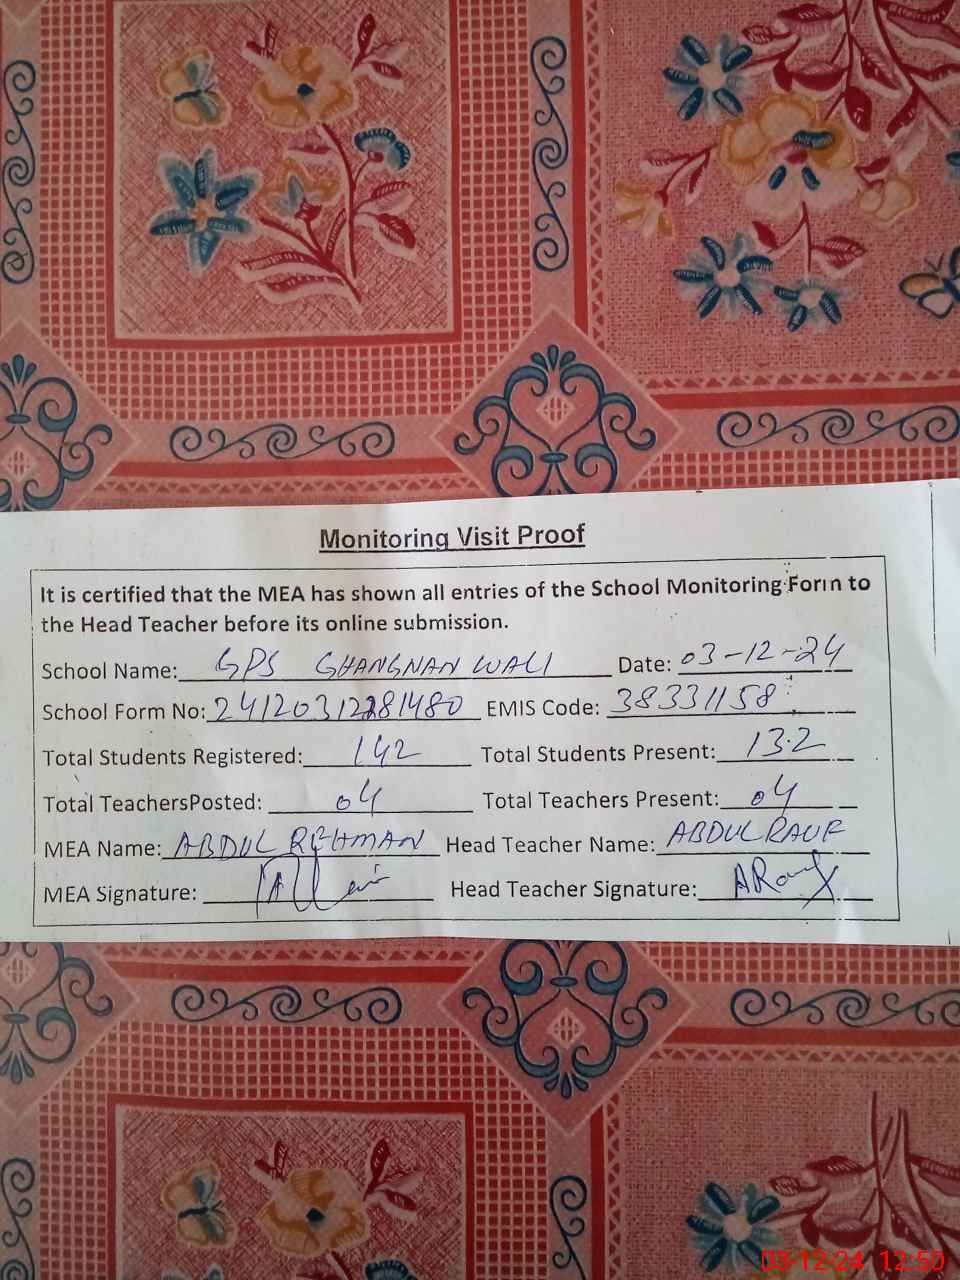 Monitoring Visit Proof
It is certified that the MEA has shown all entries of the School Monitoring Form to
the Head Teacher before its online submission.
School Name: GPS GHANGNAN WALI Date: 03-12-24
School Form No: 24120312281480 EMIS Code: 38331158
Total Students Registered: 142 Total Students Present: 132
Total TeachersPosted: 04 Total Teachers Present: 04
MEA Name: ABDUL REHMAN Head Teacher Name: ABDUL RAUF
MEA Signature: Head Teacher Signature: ARauf
03-12-24 12:50